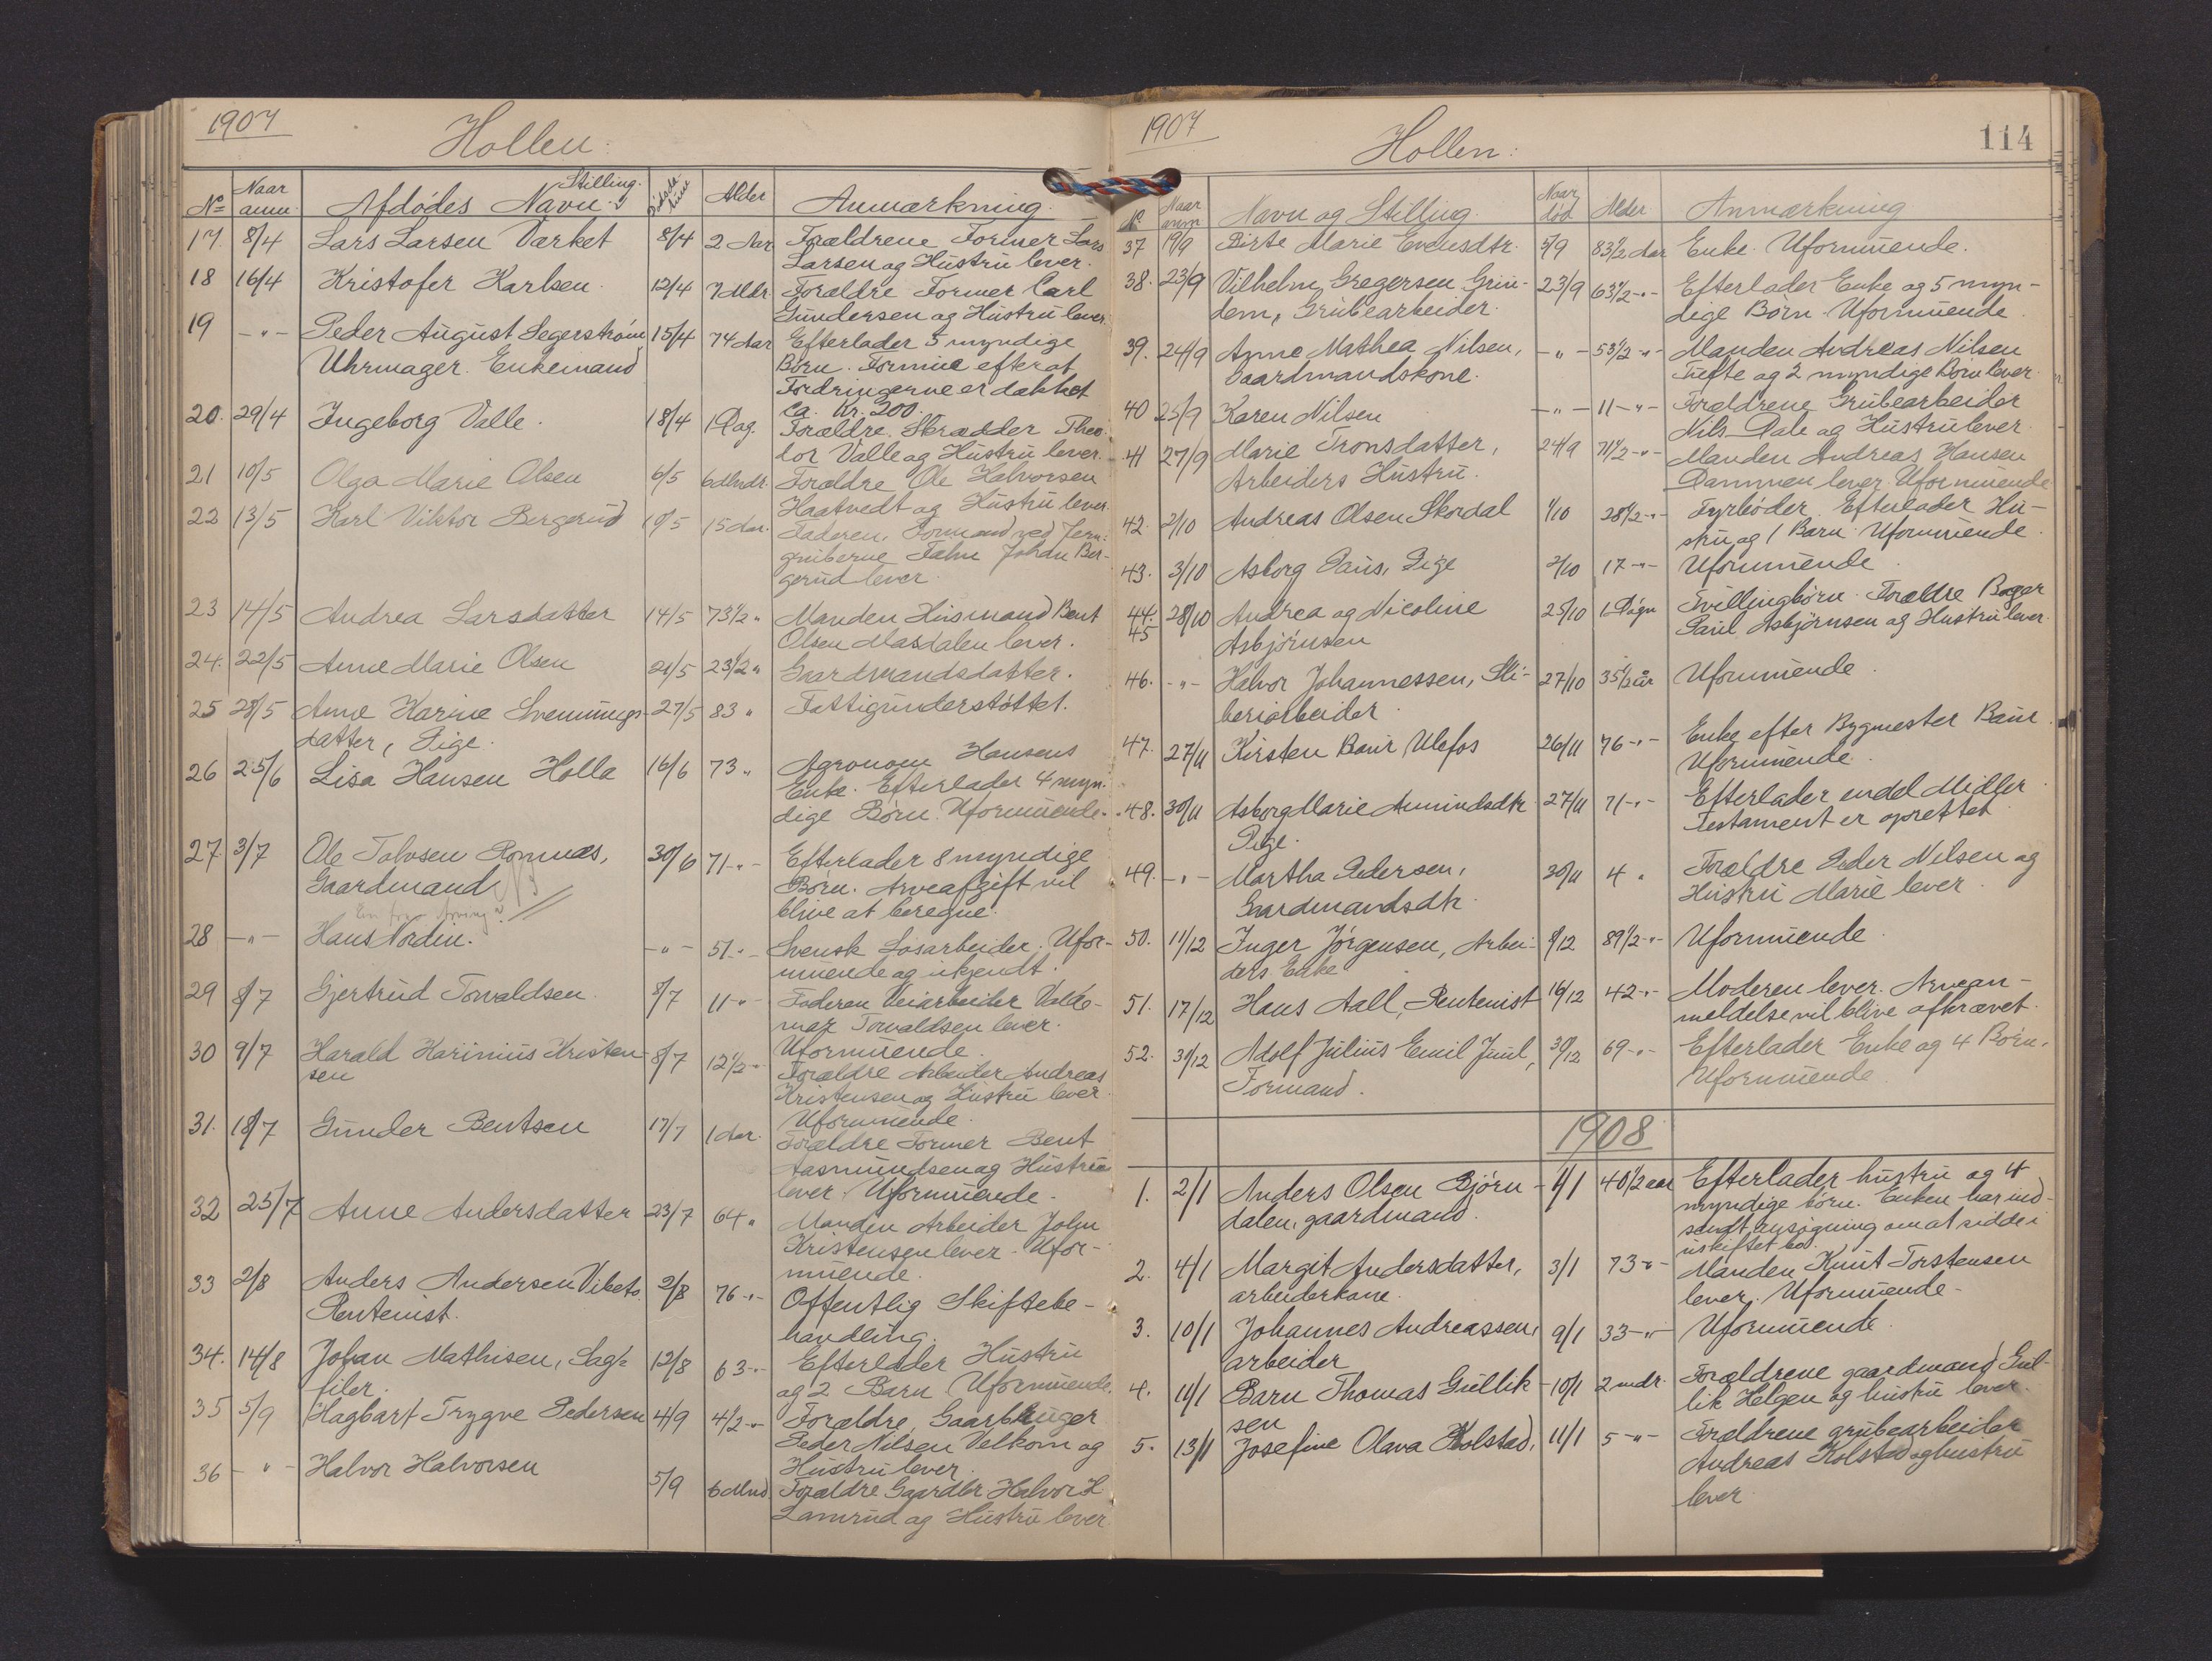 1907
Hollen:
Nº Naar anm. Afdødes Navn. Stilling. Alder Anmærkning.
17. 8/4 Lars Larsen Værket 8/4 2 Aar Forældrene Former Lars
Larsen og Hustru lever.
18 16/4 Kristofer Karlsen. 12/4 7 Mdr. Forældre Former Carl
Gundersen og Hustru lever.
19 -"- Peder August Segerstrøm 15/4 74 Aar Efterlader 5 myndige
Uhrmager. Enkemand Børn. Formue efter at
Fordringerne er dækket
ca. Kr. 200.
20. 29/4 Ingeborg Valle. 18/4 1 Dag. Forældre. Skrædder Theo-
dor Valle og Hustru lever.
21 10/5 Olga Marie Olsen 6/5 6 Mndr. Forældre Ole Halvorsen
Haatvedt og Hustru lever.
22 13/5 Karl Viktor Bergerud 10/5 15 Aar. Faderen, Formand ved Jern-
gruberne Johan Ber-
gerud lever.
23 14/5 Andrea Larsdatter 14/5 73 1/2 " Manden Husmand Bent
Olsen Masdalen lever.
24. 22/5 Anne Marie Olsen 21/5 23 1/2 " Gaardmandsdatter.
25 28/5 Anne Karine Svennungs- 27/5 83 " Fattigunderstøttet.
datter, Pige.
26 25/6 Lisa Hansen Holla 16/6 73 " Agronom Hansens
Enke. Efterlader 4 myn-
dige Børn. Uformuende.
27. 3/7 Ole Tolvsen Romnæs, 30/6 71 -"- Efterlader 8 myndige
Gaardmand Børn. Arveafgift vil
blive at beregne.
28 -"- Hans Nordin. -"- 51 -"- Svensk Løsarbeider. Ufor-
muende og ukjendt.
29 8/7 Gjertrud Torvaldsen. 8/7 11 -"- Faderen Veiarbeider Valde-
mar Torvaldsen lever.
Uformuende.
30 9/7 Harald Karinius Kristen- 8/7 12 1/2 -"- Forældre Arbeider Andreas
sen Kristensen og Hustru lever.
Uformuende.
31. 18/7 Gunder Bentsen 17/7 1 Aar. Forældre Former Bent
Aasmundsen og Hustru
lever. Uformuende.
32 25/7 Anne Andersdatter 23/7 64 " Manden Arbeider John
Kristensen lever. Ufor-
muende.
33 2/8 Anders Andersen Vibeto. 2/8 76 -"- Offentlig Skiftebe-
Rentenist. handling.
34. 14/8 Johan Mathisen, Sag- 12/8 63 -"- Efterlader Hustru
filer. og 2 Barn Uformuende.
35 5/9 Hagbart Trygve Pedersen 4/9 4 1/2 -"- Forældre, Gaardbruger
Peder Nilsen Velkom og
Hustru lever.
36 -"- Halvor Halvorsen 5/9 6 Mnd. Forældre Gaardbr Halvor H.
Lannrud og Hustru lever
1907
Hollen:
114
Nº Naar anm. Navn og Stilling. Naar død Alder Anmærkning
37 19/9 Birte Marie Evensdtr. 5/9 83 1/2 Aar Enke. Uformuende.
38. 23/9 Vilhelm Gregersen Grin- 23/9 63 1/2 -"- Efterlader Enke og 5 myn-
dem, Grubearbeider. dige Børn. Uformuende.
39. 24/9 Anne Mathea Nilsen, -"- 53 1/2 -"- Manden Andreas Nilsen
Gaardmandskone. Tufte og 2 myndige Børn lever.
40 25/9 Karen Nilsen -"- 11 -"- Forældrene Grubearbeider
Nils Dale og Hustru lever.
41 27/9 Marie Tronsdatter, 24/9 71 1/2 -"- Manden Andreas Hansen
Arbeiders Hustru. Dammen lever. Uformuende
42. 2/10 Andreas Olsen Skordal 1/10 28 1/2 -"- Fyrbøder. Efterlader Hu-
stru og 1 Barn. Uformuende.
43. 3/10 Asborg Paus, Pige 2/10 17 -"- Uformuende.
44. 28/10 Andrea og Nicoline 25/10 1 Døgn Tvillingbørn. Forældre Bager
45 Asbjørnsen Paul Asbjørnsen og Hustru lever.
46. -"- Halvor Johannessen, Sli- 27/10 35 1/2 år Uformuende.
beriarbeider.
47. 27/11 Kirsten Baur Ulefos 26/11 76 -"- Enke efter Bygmester Baur.
Uformuende.
48. 30/11 Asborg Marie Amundsdtr. 27/11 71 -"- Efterlader endel Midler.
Pige. Testament er oprettet.
49. -"- Martha Pedersen, 30/11 4 " Forældre Peder Nilsen og
Gaardmandsdtr. Hustru Marie lever.
50. 11/12 Inger Jørgensen, Arbei- 8/12 89 1/2 -"- Uformuende.
ders Enke
51. 17/12 Hans Aall, Rentenist 16/12 42 -"- Moderen lever. Arvean-
meldelse vil blive afkrævet.
52. 31/12 Adolf Julius Emil Juul, 30/12 69 -"- Efterlader Enke og 4 Børn.
Formand. Uformuende.
1908
1. 2/1 Anders Olsen Bjørn- 1/1 40 1/2 aar Efterlader hustru og 4
dalen, gaardmand. myndige børn. Enken har ind-
sendt om at sidde i
uskiftet bo.
2. 4/1 Margit Andersdatter, 3/1 73 -"- Manden Knut Torstensen
arbeiderkone. lever. Uformuende.
3. 10/1 Johannes Andreassen, 9/1 33 -"- Uformuende.
arbeider
4. 11/1 Barn Thomas Gullik- 10/1 2 mdr. Forældrene gaardmand Gul-
sen lik Helgen og hustru lever.
5. 13/1 Josefine Olava Kolstad, 11/1 5 -"- Forældrene grubearbeider
Andreas Kolstad og hustru
lever.